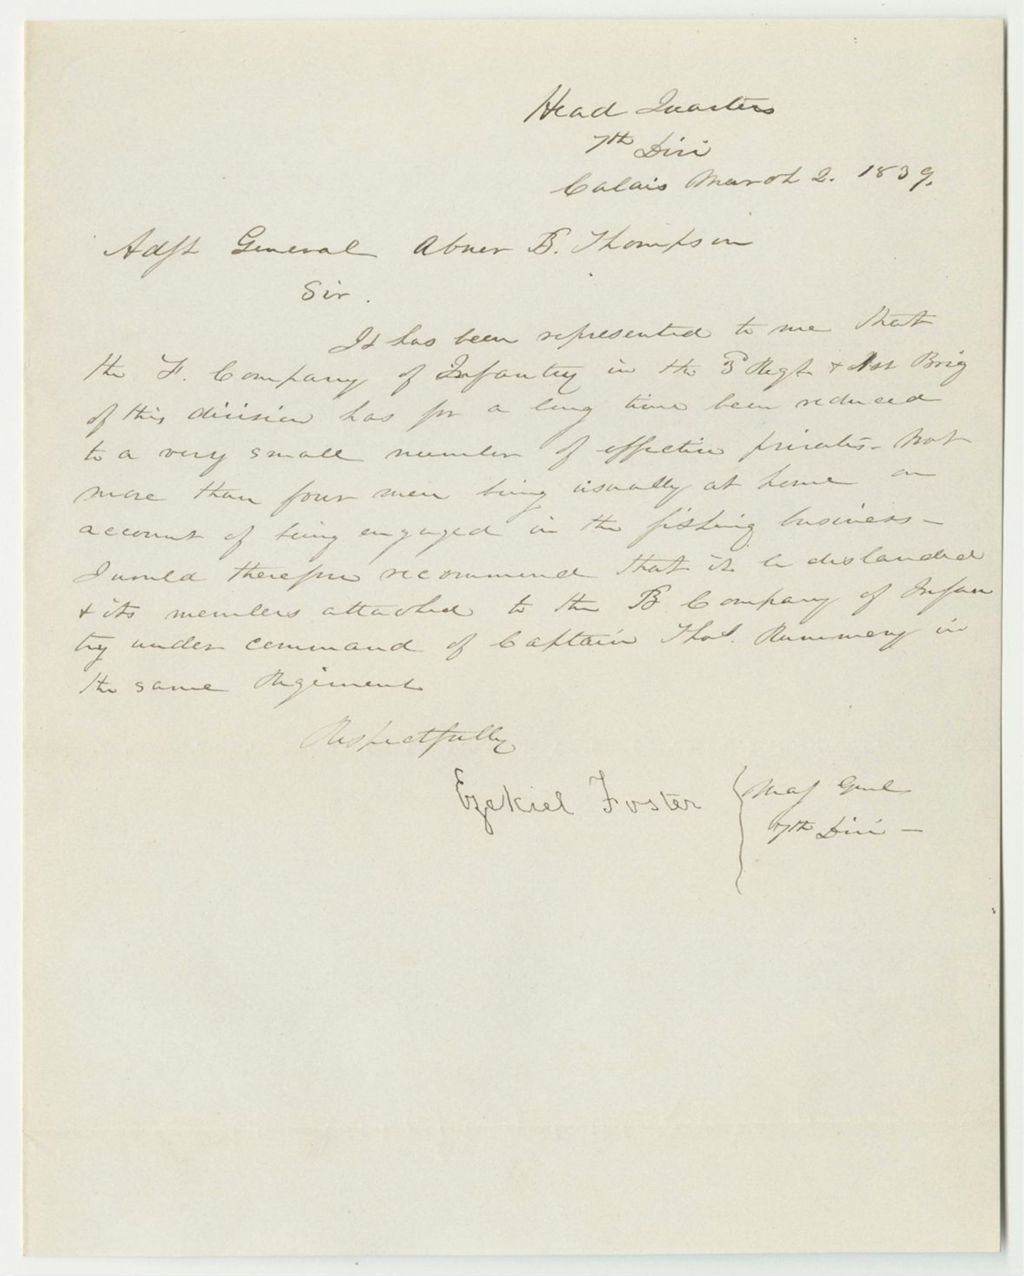 Head Quarters
7th Divi
Calais March 2. 1839.
Adjt General Abner B. Thompson
Sir.
It has been represented to me that
the F. Company of Infantry in the 3 Regt & 1st Brig
of this division has for a long time been reduced
to a very small number of effective privates - not
more than four men being usually at home on
account of being engaged in the fishing business -
I would therefore recommend that it be disbanded
& its members attached to the B Company of Infan
try under command of Captain Thos. Rummery in
the same Regiment
Respectfully
Ezekiel Foster { Maj Genl
7th Divi -